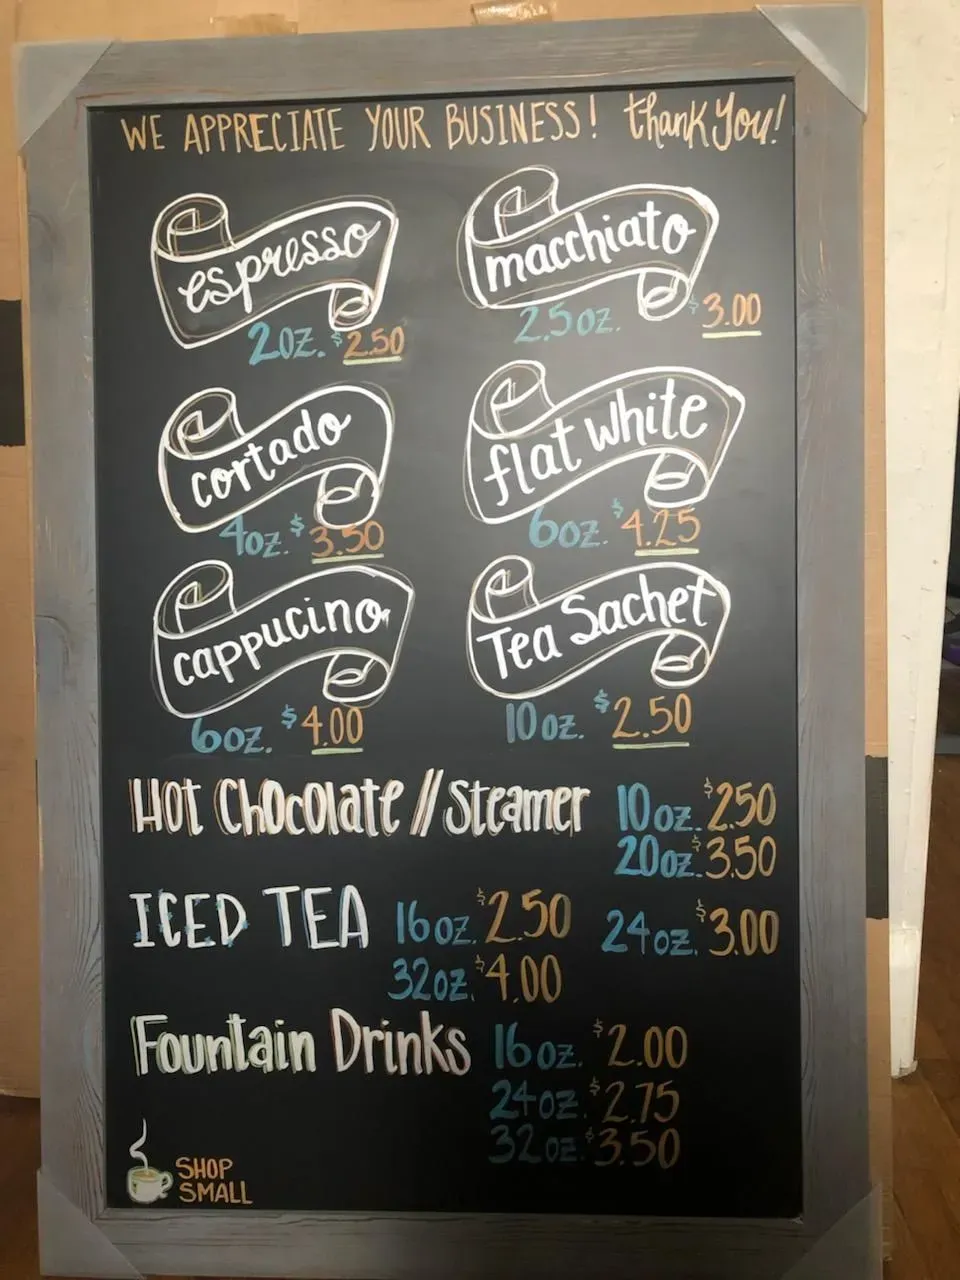 WE APPRECIATE YOUR BUSINESS! thank you!
espresso
2oz. $2.50
macchiato
2.5oz. $3.00
cortado
4oz. $3.50
flat white
6oz. $4.25
cappucino
6oz. $4.00
Tea Sachet
10oz. $2.50
Hot Chocolate // Steamer 10oz. $2.50
20oz. $3.50
ICED TEA 16oz. $2.50 24oz. $3.00
32oz. $4.00
Fountain Drinks 16oz. $2.00
24oz. $2.75
32oz. $3.50
SHOP
SMALL